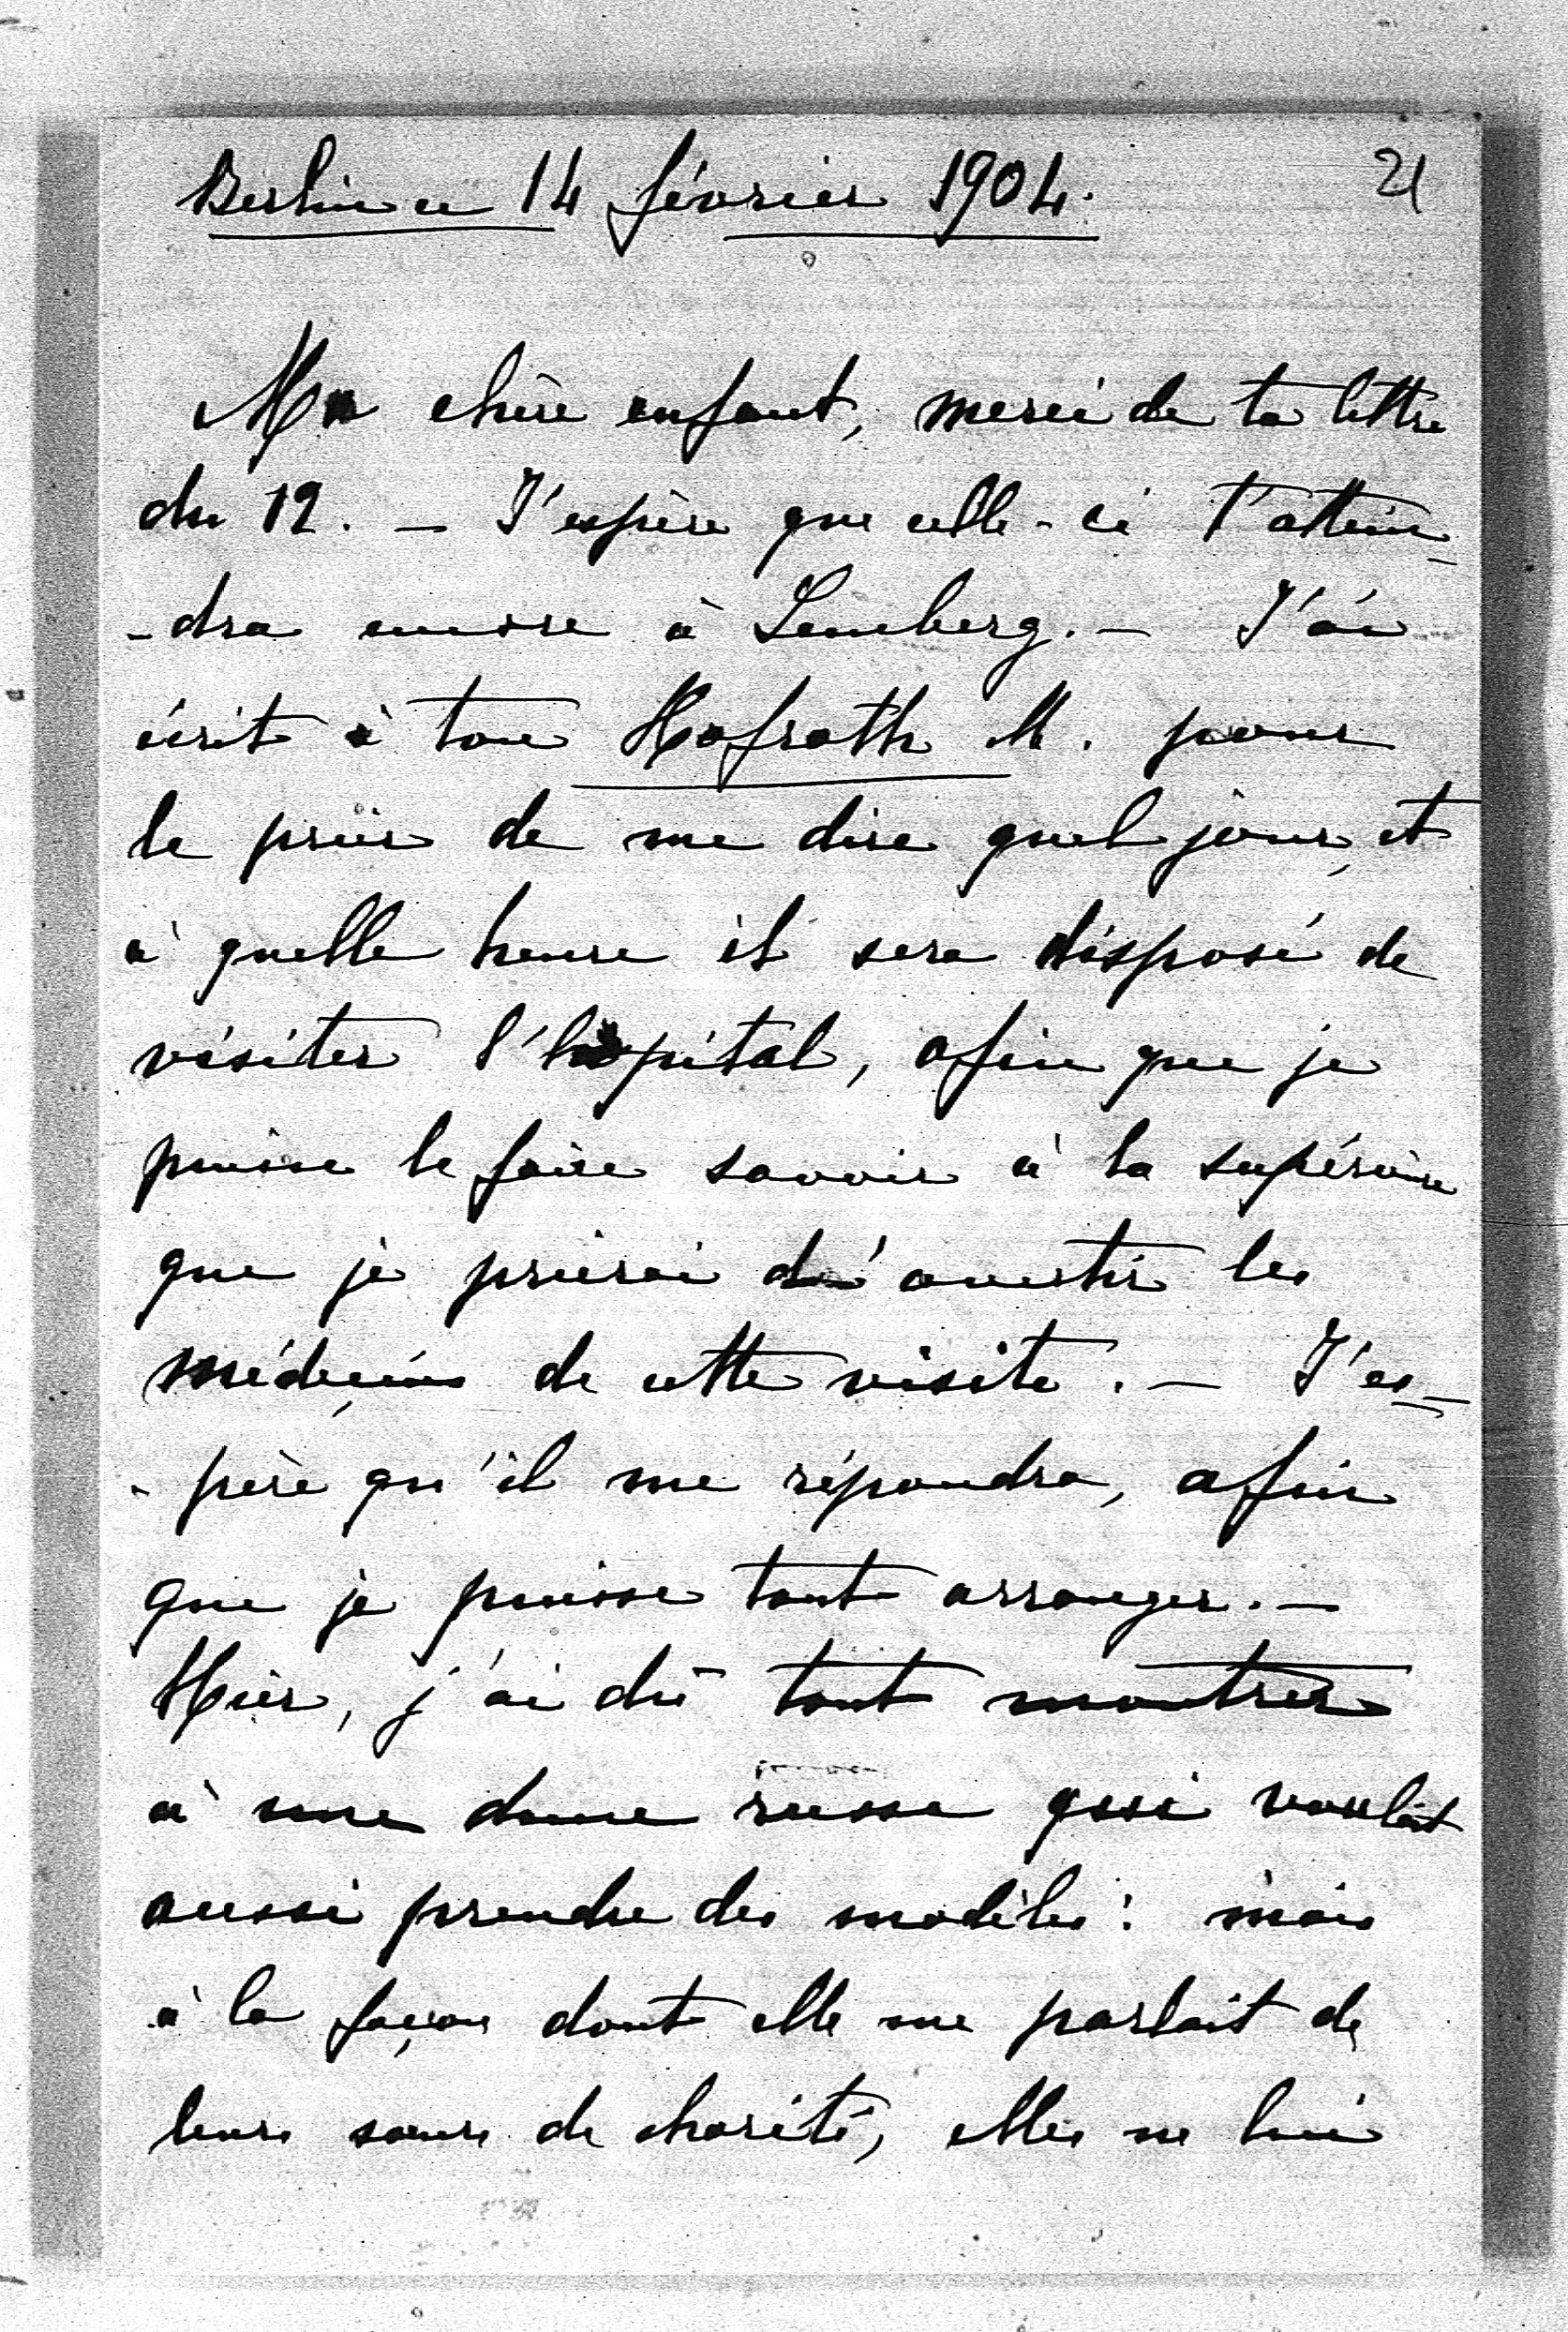 Berlin ce 14 février 1904.
21
Ma chère enfant, merci de ta lettre
du 12. — J'espère que celle-ci t'attein-
-dra encore à Lemberg. — J'ai
écrit à ton Hofrath M. pour
le prier de me dire quel jour, et
à quelle heure il sera disposé de
visiter l'hôpital, afin que je
puisse le faire savoir à la supérieure
que je prierai d'avertir les
médeçins de cette visite. — J'es-
-père qu'il me répondra, afin
que je puisse tout arranger. —
Hier, j'ai dû tout montrer
à une dame russe qui voulait
aussi prendre des modèles: mais
à la façon dont elle me parlait de
leurs sœurs de charité, elles ne lui